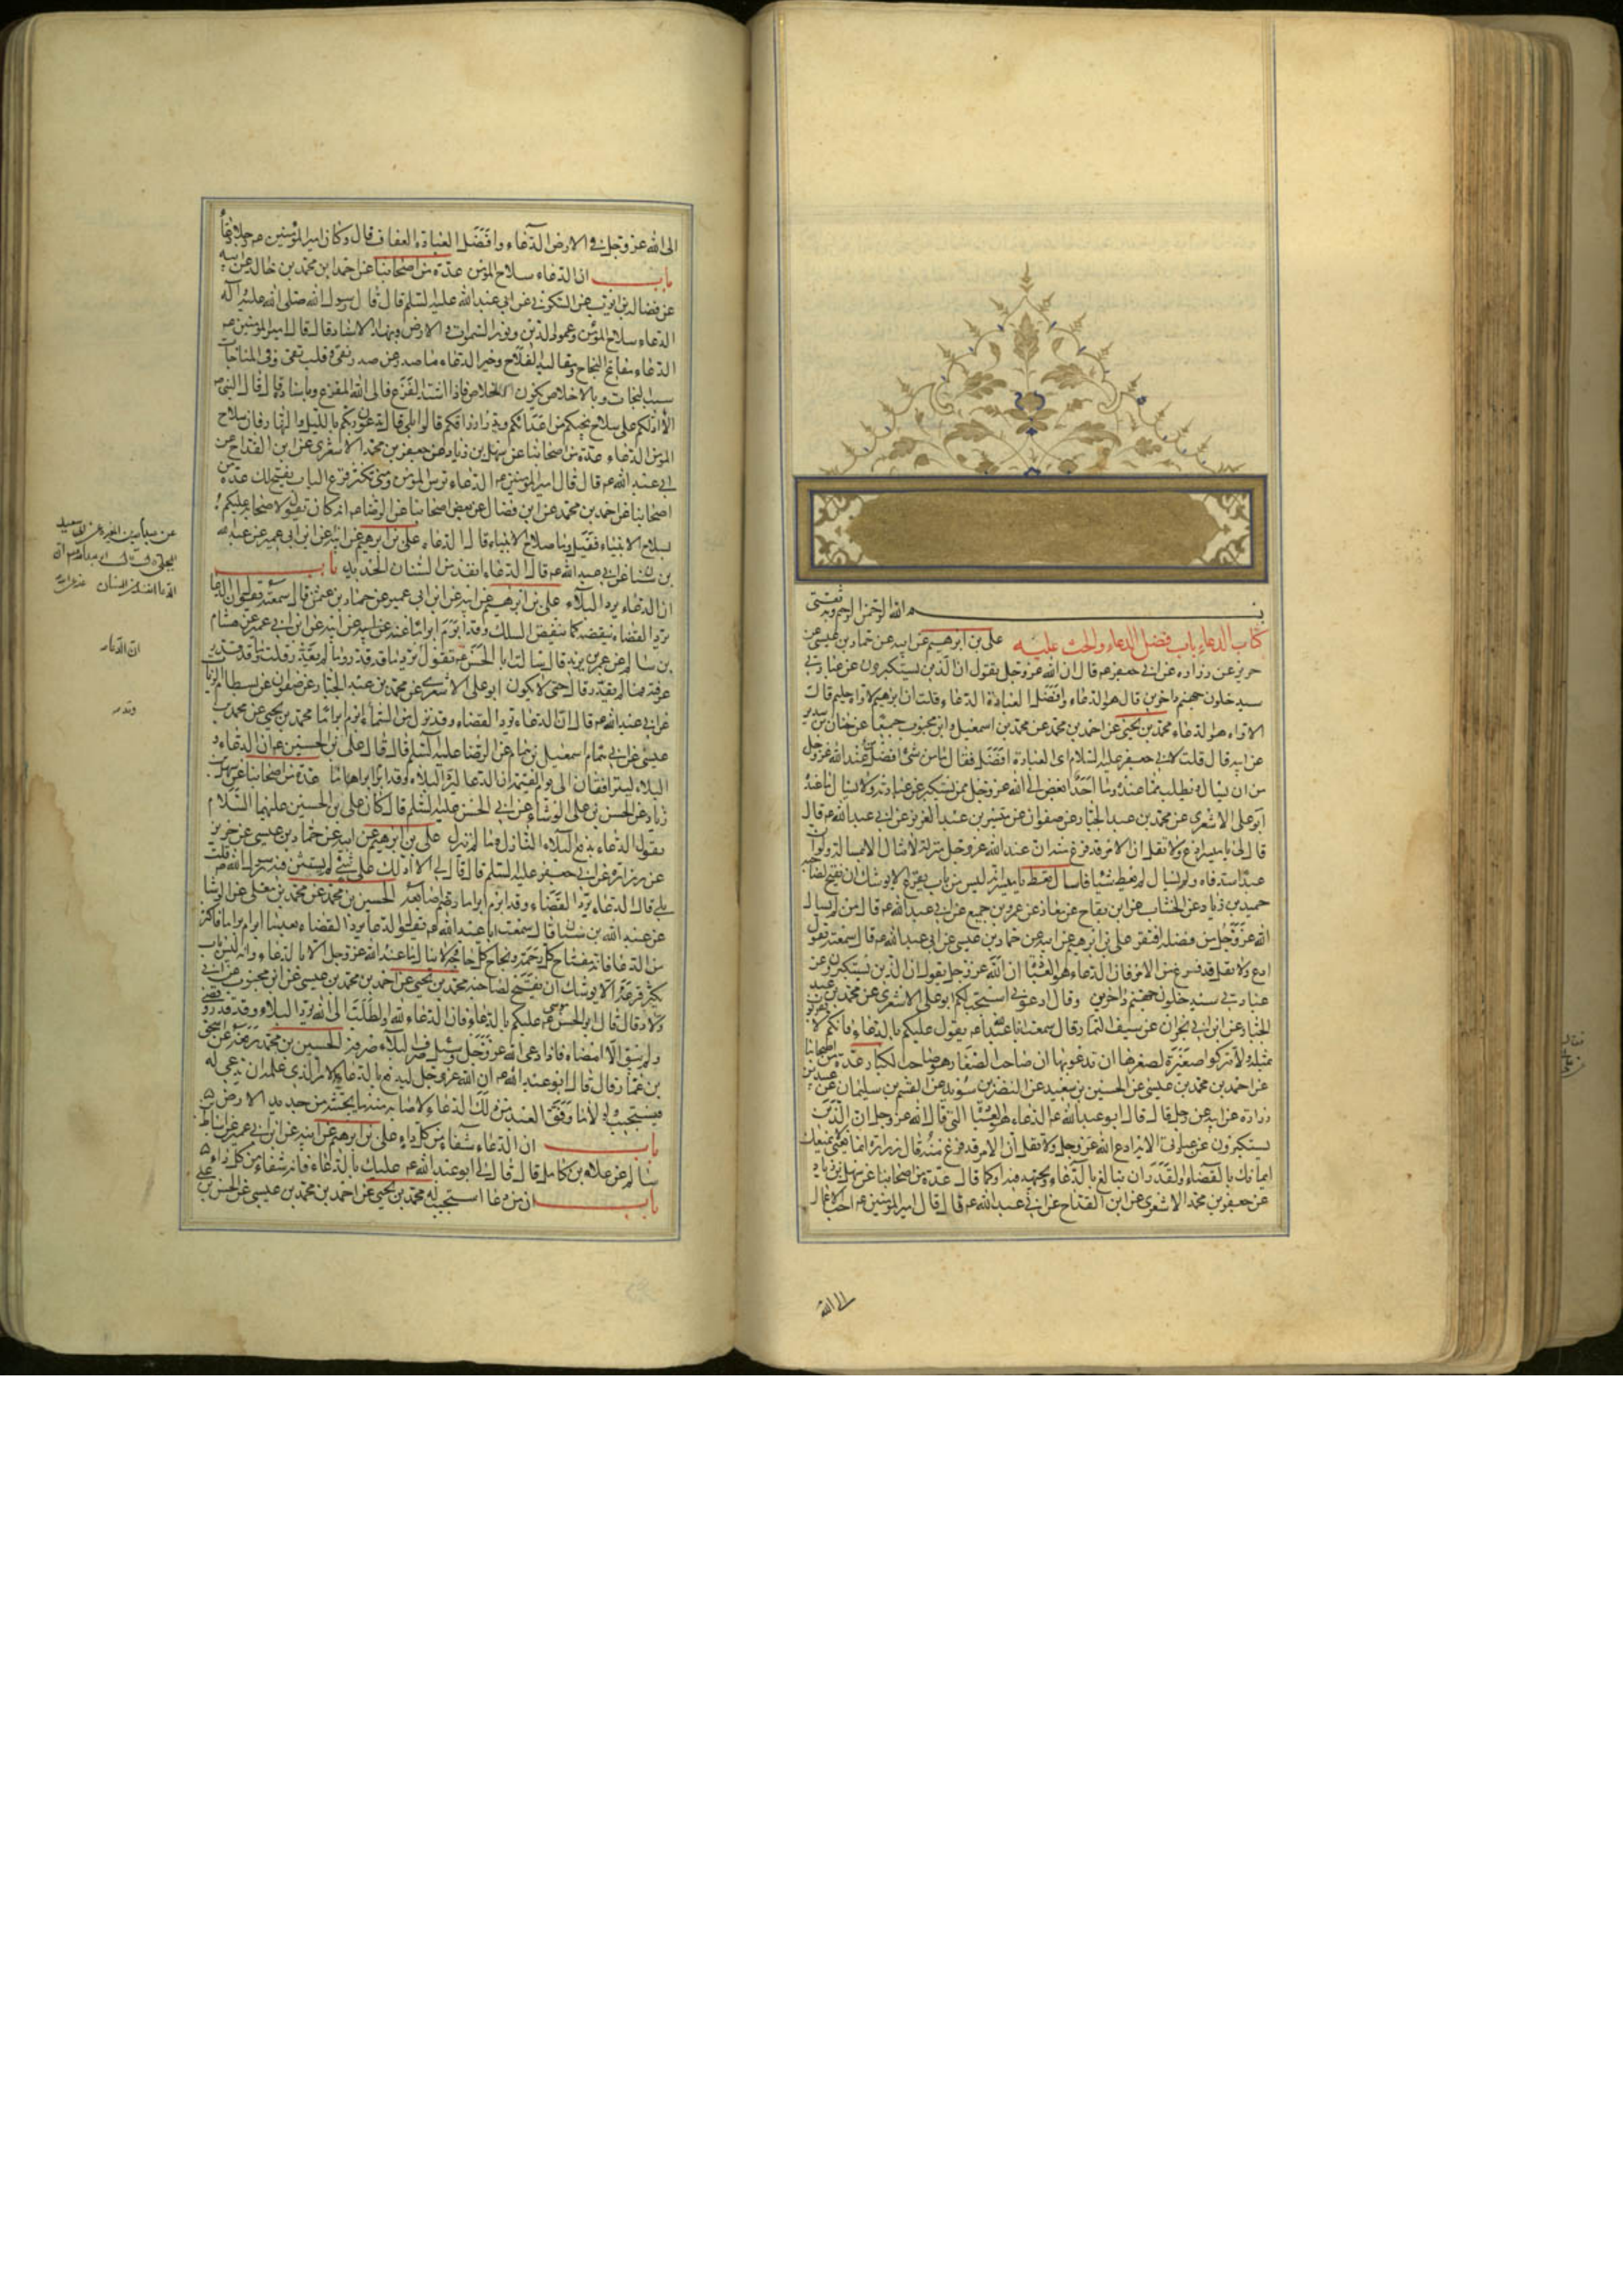 بسم الله الرحمن الرحيم وبه ثقتي
كتاب الدعاء باب فضل الدعاء والحث عليه علي بن ابرهيم عن ابيه عن حماد بن عيسى عن
حريز عن زراره عن ابي جعفر عم قال ان الله عز وجل يقول ان الذين يستكبرون عن عبادتي
سيدخلون جهنم داخرين قال هو الدعاء وافضل العبادة الدعاء قلت ان ابرهيم لاواه حليم قال
الاواه هو الدعاء محمد بن يحيى عن احمد بن محمد عن محمد بن اسمعيل وابن محبوب جميعا عن حنان بن سدير
عن ابيه قال قلت لابي جعفر عليه السلام اي العبادة افضل فقال ما من شئ افضل عند الله عز وجل
من ان يسال ويطلب مما عنده وما احد ابغض الى الله عز وجل ممن يستكبر عن عبادته ولا يسال ما عنده
ابو علي الاشعري عن محمد بن عبد الجبار عن صفوان عن ميسر بن عبد العزيز عن ابي عبد الله عم قال
قال لي يا ميسر ادع ولا تقل ان الامر قد فرغ منه ان عند الله عز وجل منزلة لا تنال الا بمسالة ولو ان
عبدا سد فاه ولم يسال لم يعط شيئا فاسال تعط يا ميسر انه ليس من باب يقرع الا يوشك ان يفتح لصاحبه
حميد بن زياد عن الخشاب عن ابن بقاح عن معاذ عن عمرو بن جميع عن ابي عبد الله عم قال من لم يسال
الله عز وجل من فضله افتقر علي بن ابرهيم عن ابيه عن حماد بن عيسى عن ابي عبد الله عم قال سمعته يقول
ادع ولا تقل قد فرغ من الامر فان الدعاء هو العبادة ان الله عز وجل يقول ان الذين يستكبرون عن
عبادتي سيدخلون جهنم داخرين وقال ادعوني استجب لكم ابو علي الاشعري عن محمد بن عبد
الجبار عن ابن ابي نجران عن سيف التمار قال سمعت ابا عبد الله عم يقول عليكم بالدعاء فانكم لا تقربون
بمثله ولا تتركوا صغيرة لصغرها ان تدعوا بها ان صاحب الصغار هو صاحب الكبار عدة من اصحابنا
عن احمد بن محمد بن عيسى عن الحسين بن سعيد عن النضر بن سويد عن القسم بن سليمان عن عبيد بن
زرارة عن ابيه عن رجل قال قال ابو عبد الله عم الدعاء هو العبادة التي قال الله عز وجل ان الذين
يستكبرون عن عبادتي الاية ادع الله عز وجل ولا تقل ان الامر قد فرغ منه قال زرارة انما يعني لا يمنعك
ايمانك بالقضاء والقدر ان تبالغ بالدعاء وتجتهد فيه او كما قال عدة من اصحابنا عن سهل بن زياد
عن جعفر بن محمد الاشعري عن ابن القداح عن ابي عبد الله عم قال قال امير المؤمنين عم احب الاعمال
الى الله
الى الله عز وجل في الارض الدعاء وافضل العبادة العفاف قال وكان امير المؤمنين عم رجلا دعاء
باب ان الدعاء سلاح المؤمن عدة من اصحابنا عن احمد بن محمد بن خالد عن ابيه
عن فضالة بن ايوب عن السكوني عن ابي عبد الله عليه السلم قال قال رسول الله صلى الله عليه وآله
الدعاء سلاح المؤمن وعمود الدين ونور السموات والارض وبهذا الاسناد قال قال امير المؤمنين عم
الدعاء مفاتيح النجاح ومقاليد الفلاح وخير الدعاء ما صدر عن صدر نقي وقلب تقي وفي المناجات
سبب النجات وبالاخلاص يكون الخلاص فاذا اشتد الفزع فالى الله المفزع وباسناده قال قال النبي ص
الا ادلكم على سلاح ينجيكم من اعدائكم ويدر ارزاقكم قالوا بلى قال تدعون ربكم بالليل والنهار فان سلاح
المؤمن الدعاء عدة من اصحابنا عن سهل بن زياد عن جعفر بن محمد الاشعري عن ابن القداح عن
ابي عبد الله عم قال قال امير المؤمنين عم الدعاء ترس المؤمن ومتى تكثر قرع الباب يفتح لك عدة من
اصحابنا عن احمد بن محمد عن ابن فضال عن بعض اصحابنا عن الرضا عم انه كان يقول لاصحابه عليكم
بسلاح الانبياء فقيل وما سلاح الانبياء قال الدعاء علي بن ابرهيم عن ابيه عن ابن ابي عمير عن عبد الله
بن سنان عن ابي عبد الله عم قال الدعاء انفذ من السنان الحديد باب
ان الدعاء يرد البلاء علي بن ابرهيم عن ابيه عن ابن ابي عمير عن حماد بن عثمن قال سمعته يقول ان الدعا
يرد القضاء ينقضه كما ينقض السلك وقد ابرم ابراما عنه عن ابيه عن ابن ابي عمير عن هشام
بن سالم عن عمر بن يزيد قال سمعت ابا الحسن عم يقول ان الدعاء يرد ما قد قدر وما لم يقدر قلت وما قد قدر
عرفته فما لم يقدر قال حتى لا يكون ابو علي الاشعري عن محمد بن عبد الجبار عن صفوان عن بسطام الزيات
عن ابي عبد الله عم قال ان الدعاء يرد القضاء وقد نزل من السماء وقد ابرم ابراما محمد بن يحيى عن محمد بن
عيسى عن ابي همام اسمعيل بن همام عن الرضا عليه السلم قال قال علي بن الحسين عم ان الدعاء و
البلاء ليترافقان الى يوم القيمة ان الدعا ليرد البلاء وقد ابرم ابراما عدة من اصحابنا عن سهل بن
زياد عن الحسن بن علي الوشاء عن ابي الحسن عليه السلم قال كان علي بن الحسين عليهما السلام
يقول الدعاء يدفع البلاء النازل وما لم ينزل علي بن ابرهيم عن ابيه عن حماد بن عيسى عن حريز
عن زرارة عن ابي جعفر عليه السلم قال قال لي الا ادلك على شئ لم يستثن فيه رسول الله ص قلت
بلى قال الدعاء يرد القضاء وقد ابرم ابراما وضم اصابعه الحسين بن محمد عن معلى بن محمد عن الوشا
عن عبد الله بن سنان قال سمعت ابا عبد الله عم يقول الدعا يرد القضاء بعد ما ابرم ابراما فاكثر
من الدعا فانه مفتاح كل رحمة ونجاح كل حاجة ولا ينال ما عند الله عز وجل الا بالدعاء وانه ليس باب
يكثر قرعه الا يوشك ان يفتح لصاحبه محمد بن يحيى عن احمد بن محمد بن عيسى عن ابن محبوب عن ابي
ولاد قال قال ابو الحسن موسى عم عليكم بالدعاء فان الدعاء لله والطلب الى الله يرد البلاء وقد قدر وقضي
ولم يبق الا امضاؤه فاذا دعي الله عز وجل وسئل صرف البلاء صرفه الحسين بن محمد رفعه عن اسحق
بن عمار قال قال ابو عبد الله عم ان الله عز وجل ليدفع بالدعاء الامر الذي علمه ان يدعى له
فيستجيب ولولا ما وفق العبد من ذلك الدعاء لاصابه منه ما يجتثه من جديد الارض
باب ان الدعاء شفاء من كل داء علي بن ابرهيم عن ابيه عن ابن ابي عمير عن اسباط بن
سالم عن علاء بن كامل قال قال لي ابو عبد الله عم عليك بالدعاء فانه شفاء من كل داء
باب ان من دعا استجيب له محمد بن يحيى عن احمد بن محمد بن عيسى عن الحسن بن علي
ان الدعاء